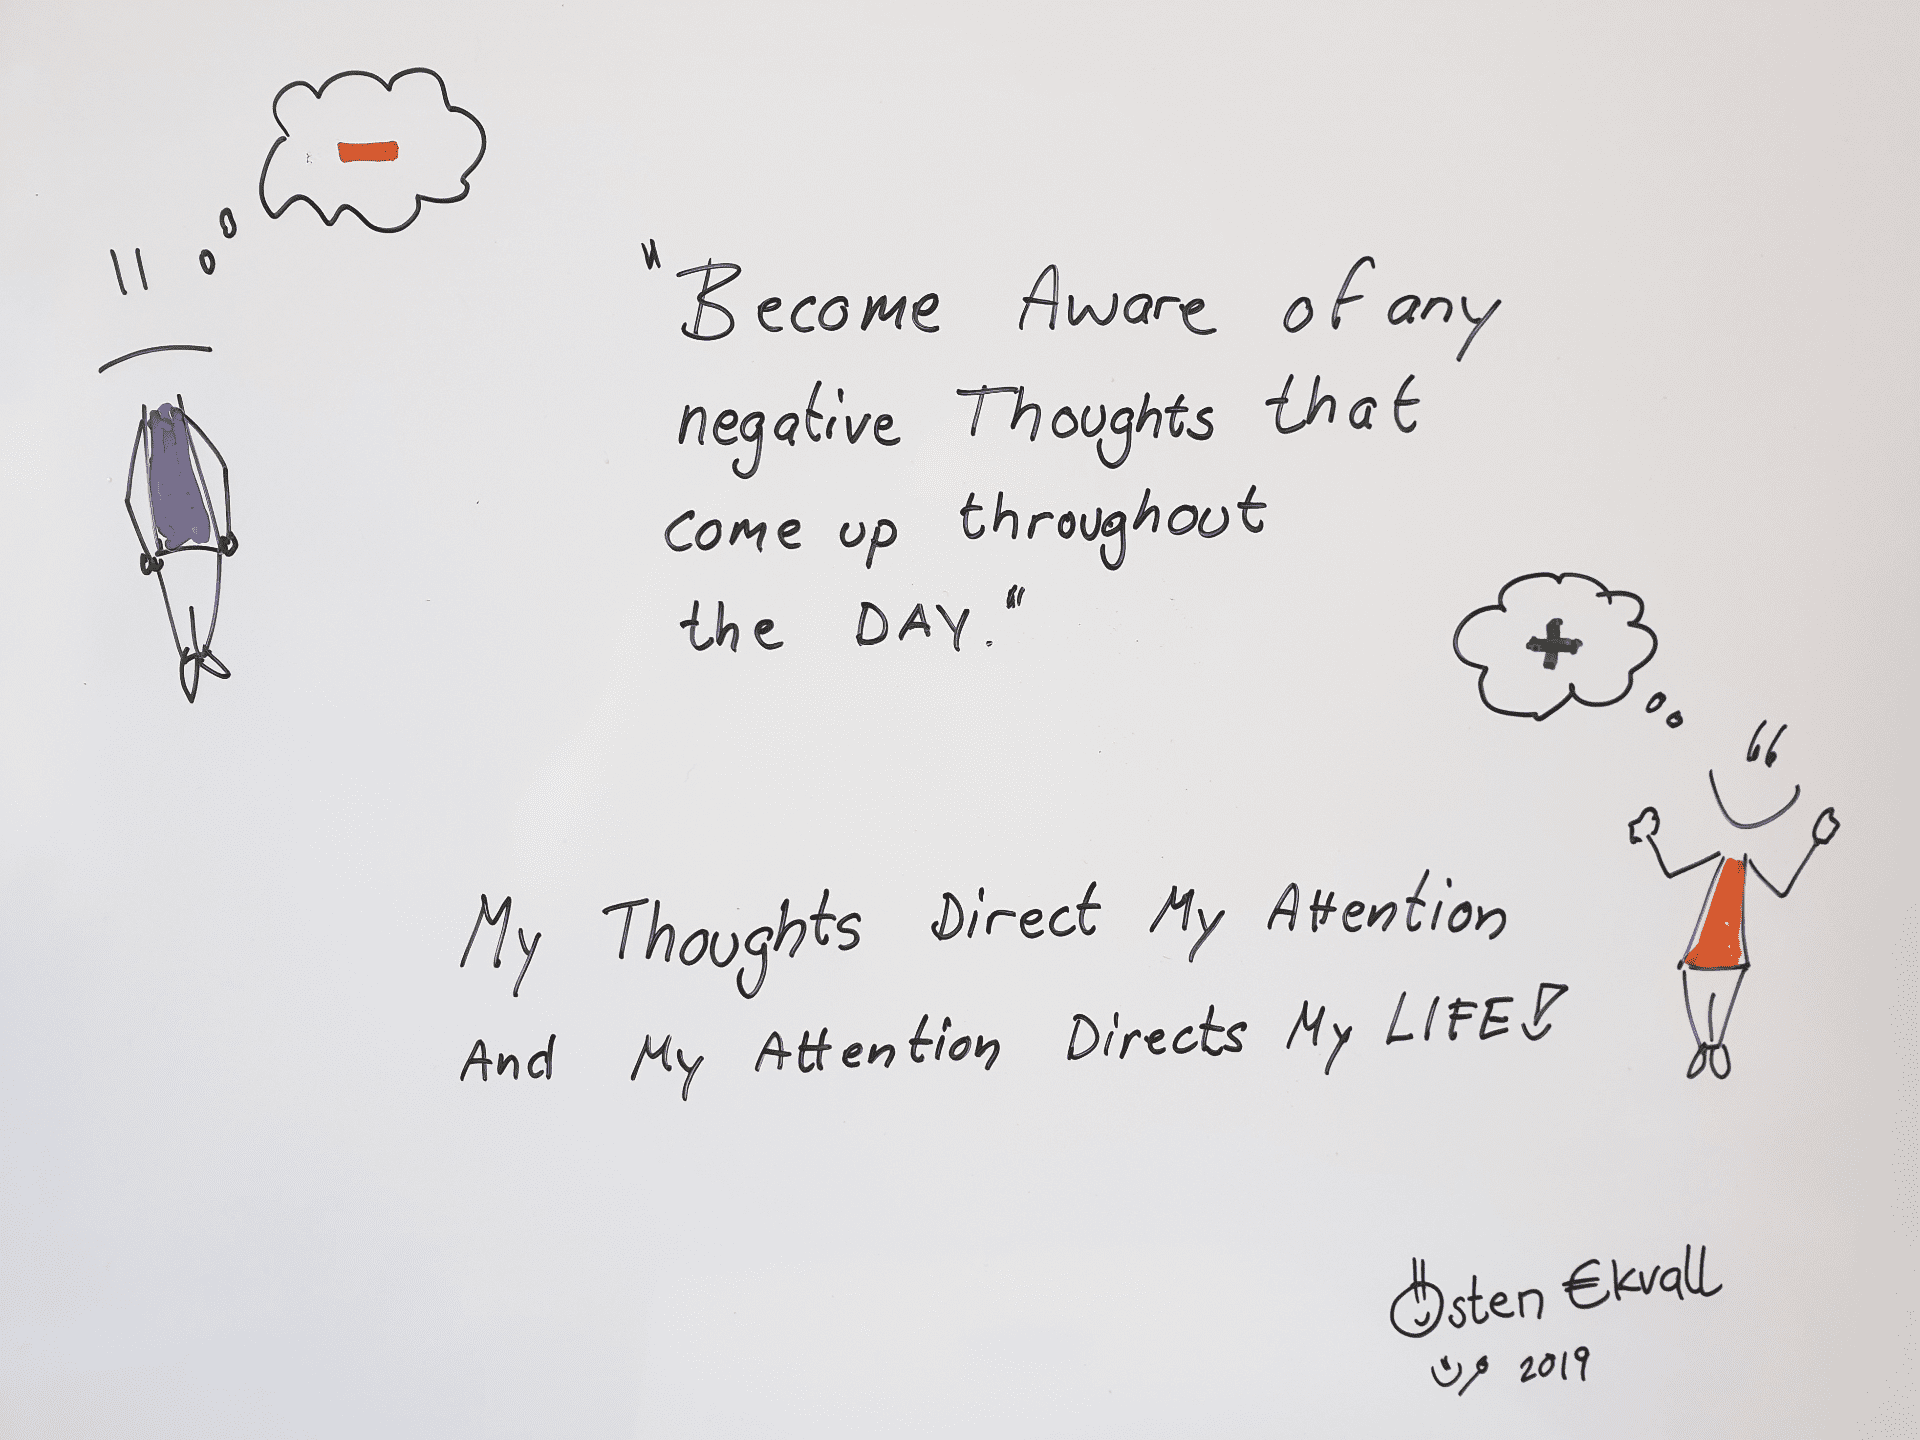 "Become Aware of any
negative Thoughts that
come up throughout
the DAY."
My Thoughts Direct My Attention
And My Attention Directs My LIFE!
Östen Ekvall
2019